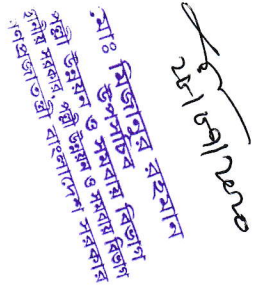 ২৮/০৭/২০২০
মোঃ মিজানুর রহমান
উপসচিব
পল্লী উন্নয়ন ও সমবায় বিভাগ
স্থানীয় সরকার, পল্লী উন্নয়ন ও সমবায় বিভাগ
গণপ্রজাতন্ত্রী বাংলাদেশ সরকার